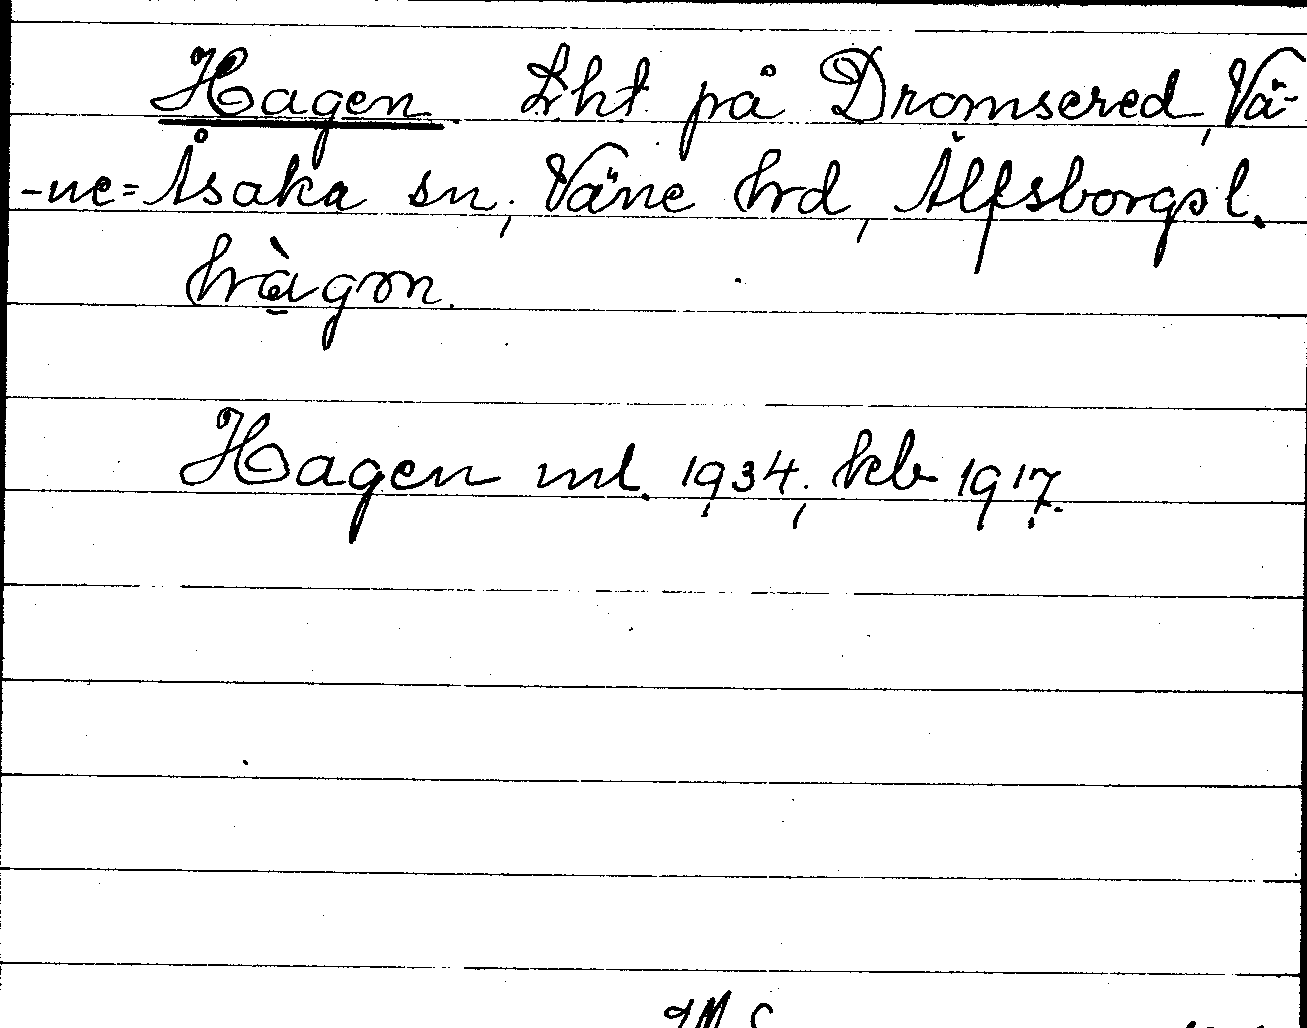 Hagen. Lht på Dromsered, Vä-
-ne=Åsaka sn, Väne hrd, Älfsborgs l.
hàgɷn.
Hagen ml. 1934, kb 1917.